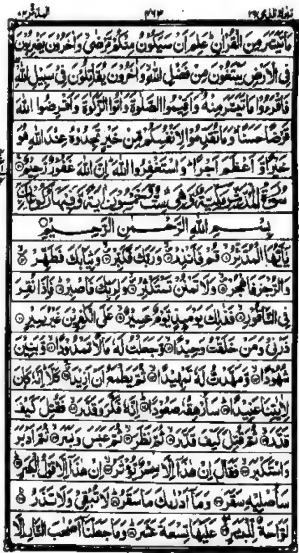 ما تيسر من القران علم ان سيكون منكم مرضى واخرون يضربون
فى الارض يبتغون من فضل الله واخرون يقاتلون فى سبيل الله
فاقرءوا ما تيسر منه واقيموا الصلوة واتوا الزكوة واقرضوا الله
قرضا حسنا وما تقدموا لانفسكم من خير تجدوه عند الله هو
خيرا واعظم اجرا واستغفروا الله ان الله غفور رحيم
بسم الله الرحمن الرحيم
يايها المدثر قم فانذر وربك فكبر وثيابك فطهر
والرجز فاهجر ولا تمنن تستكثر ولربك فاصبر فاذا نقر
فى الناقور فذلك يومئذ يوم عسير على الكفرين غير يسير
ذرنى ومن خلقت وحيدا وجعلت له مالا ممدودا وبنين
شهودا ومهدت له تمهيدا ثم يطمع ان ازيد كلا انه كان
لايتنا عنيدا سارهقه صعودا انه فكر وقدر فقتل كيف
قدر ثم قتل كيف قدر ثم نظر ثم عبس وبسر ثم ادبر
واستكبر فقال ان هذا الا سحر يؤثر ان هذا الا قول البشر
ساصليه سقر وما ادرىك ما سقر لا تبقى ولا تذر
لواحة للبشر عليها تسعة عشر وما جعلنا اصحب النار الا